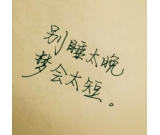 别睡太晚
梦会太短。